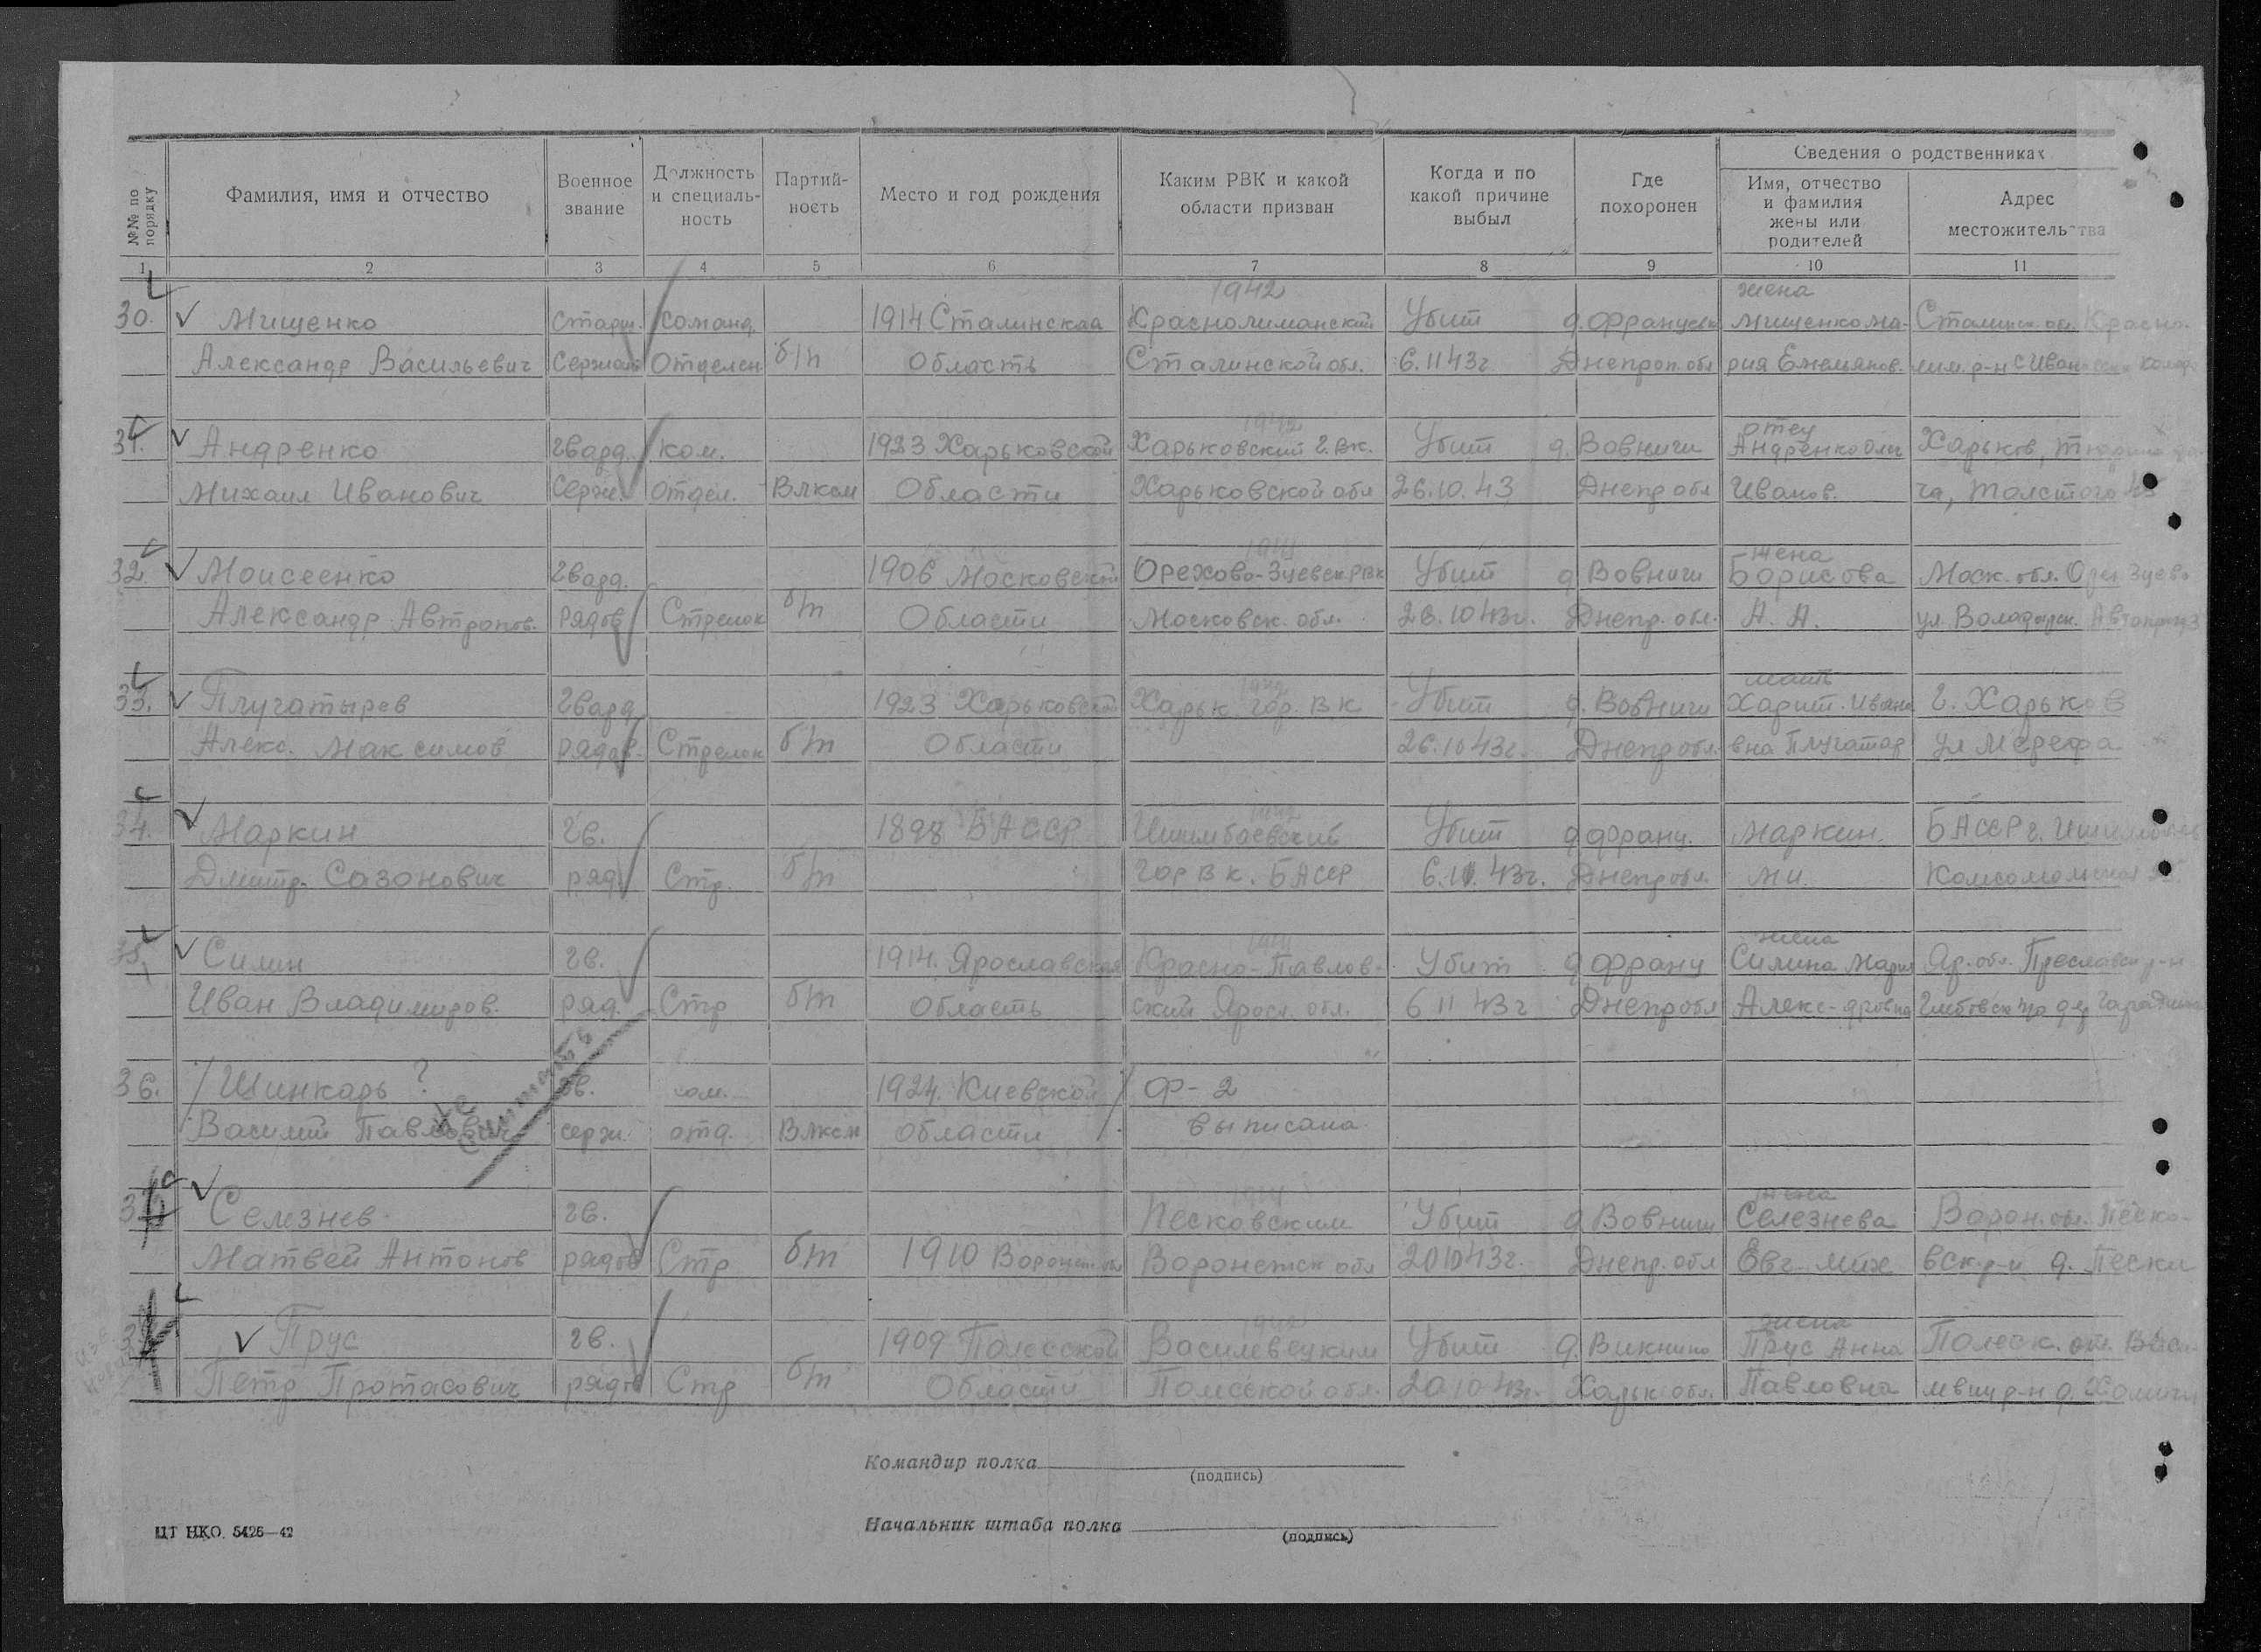 №№ по порядку
Фамилия, имя и отчество
Военное звание
Должность и специаль-ность
Партий-ность
Место и год рождения
Каким РВК и какой области призван
Когда и по какой причине выбыл
Где похоронен
Сведения о родственниках
Имя, отчество и фамилия жены или родителей
Адрес местожительства
1 2 3 4 5 6 7 8 9 10 11
1942 жена
30. Мищенко старш. команд. 1914 Сталинская Краснолиманский Убит д. Мищенко Ма- Сталинск. обл. Красно-
Александр Васильевич Сержант Отделен б/п Область Сталинской обл. 6.11 43г Днепроп. обл рия Емельянов. лим. р-н с Иван
1942 отец
31. Андренко гвард. ком. 1923 Харьковской Харьковский г.вк. Убит д. Вовниги Андренко Харьков,
Михаил Иванович Серж. отдел. Влксм Области Харьковской обл 26.10.43 Днепр обл Иванов. Толстого 45
1941 жена
32. Моисеенко гвард. 1906 Московской Орехово-Зуевск. РВК Убит д Вовниги Борисова Моск. обл. Орех Зуево
Александр Автроков. рядов Стрелок б/п Области Московск. обл. 26.10 43г. Днепр. обл. А. А. ул. Володарск.
1942 мать
33. Плугатырев гвард 1923 Харьковской Харьк. гор. ВК Убит д. Вовниги Харит. Ивано г. Харьков
Алекс. Максимов рядов. Стрелок б/п Области 26.10 43г. Днепр обл. вна Плугатар ул Мерефа
1942
34. Маркин гв. 1898 БАССР Ишимбаевский Убит д Франц. Маркин. БАССР г. Ишимбаев
Дмитр. Сазонович ряд. Стр. б/п Гор В к. БАССР 6.11.43г. Днепр обл. М И. Комсомольская
1941 жена
35. Силин гв. 1914. Ярославская Красно-Павлов- Убит д Франц Силина Мария Яр. обл. р-н
Иван Владимиров. ряд. Стр б/п Область ский Яросл. обл. 6 11 43г Днепр обл Алекс-дровна Глебовск
36. Шинкарь ? гв. ком. 1924. Киевской Ф-2
Василий Павлович серж. отд. Влксм области выписана
не считать
1941 жена
Селезнев гв. Песковским Убит д Вовниги Селезнева Ворон. обл. Песко-
Матвей Антонов рядов Стр б/п 1910 Воронеж. обл Воронежск обл 20 10 43г. Днепр. обл Евг. Мих вск. р-н д. Пески
жена
Прус гв. 1909 Полесской Василевецким Убит д. Викнино Прус Анна Полеск. обл. Васи-
Петр Протасович рядов Стр б/п Области Полесской обл. 20 10 43г. Харьк. обл. Павловна левиц р-н д.
Командир полка
(подпись)
Начальник штаба полка
(подпись)
ЦТ НКО. 5426—42